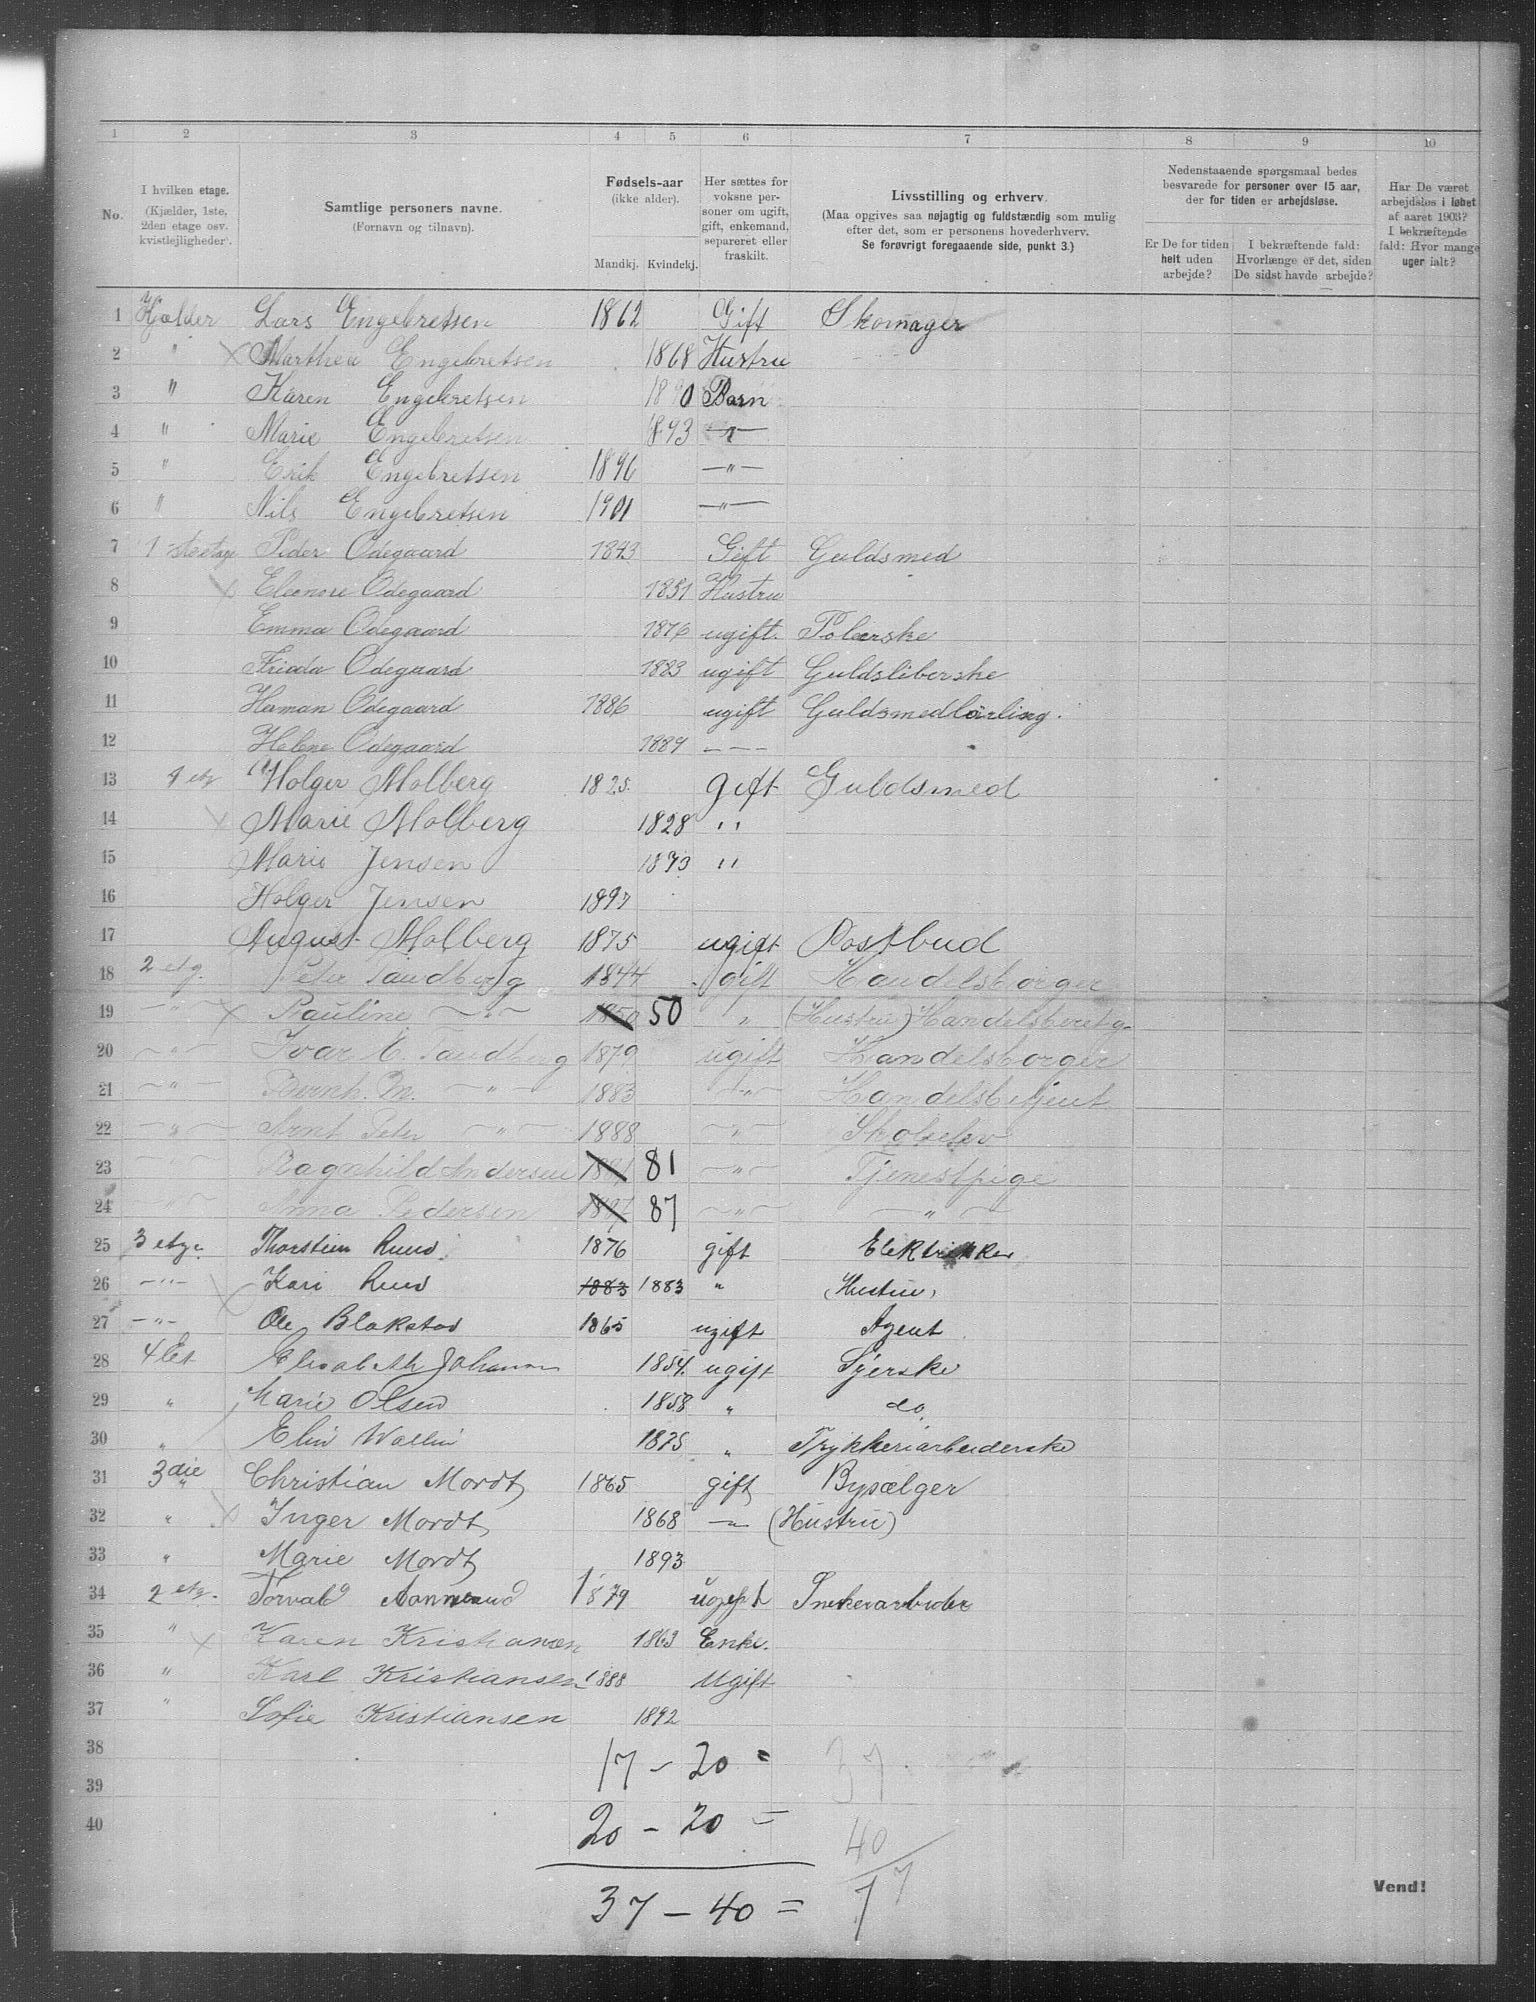 1 2 3 4 5 6 7 8 9 10
No.
I hvilken etage.
(Kjælder, 1ste,
2den etage osv.
kvistlejligheder).
Samtlige personers navne.
(Fornavn og tilnavn).
Fødsels-aar
(ikke alder).
Mandkj. Kvindekj.
Her sættes for
voksne per-
soner om ugift,
gift, enkemand,
separeret eller
fraskilt.
Livsstilling og erhverv.
(Maa opgives saa nøjagtig og fuldstændig som mulig
efter det, som er personens hovederhverv.
Se forøvrigt foregaaende side, punkt 3.)
Nedenstaaende spørgsmaal bedes
besvarede for personer over 15 aar,
der for tiden er arbejdsløse.
Er De for tiden
helt uden
arbejde?
I bekræftende fald:
Hvorlænge er det, siden
De sidst havde arbejde?
Har De været
arbejdsløs i løbet
af aaret 1903?
I bekræftende
fald: Hvor mange
uger ialt?
1 Kjælder Lars Engebretsen 1862 Gift Skomager
2 " x Marthea Engebretsen 1868 Hustru
3 " Karen Engebretsen 1890 Barn
4 " Marie Engebretsen 1893 —"—
5 " Erik Engebretsen 1896 —"—
6 " Nils Engebretsen 1901 —"—
7 1 ste etage Peder Odegaard 1843 Gift Guldsmed
8 x Eleonore Odegaard 1851 Hustru
9 Emma Odegaard 1876 ugift. Polerske
10 Frieda Odegaard 1883 ugift Guldsliberske
11 Haman Odegaard 1886 ugift Guldsmedlärling.
12 Helene Odegaard 1889 - - -
13 1 etg Holger Molberg 1825. gift Guldsmed
14 x Marie Molberg 1828 "
15 Marie Jensen 1873 "
16 Holger Jensen 1897
17 August Molberg 1875 ugift Postbud
18 2 etg. Peter Tandberg 1844 gift Handelsborger
19 —"— x Pauline —"— 1850 50 " (Hustru) Handelsborg.
20 —"— Ivar A. Tandberg 1879 ugift Handelsborger
21 —"— Bernh. M. —"— 1883 —"— Handelsbetjent
22 —"— Arnt Peter —"— 1888 —"— Skoleelev
23 —"— Ragnhild Andersen 1881 81 —"— Tjenestpige
24 —"— Anna Pedersen 1887 87 —"— —"—
25 3 etge. Thorstein Ruud 1876 gift Elektrikker
26 —"— Kari Ruud 1883 1883 " (Hustru)
27 —"— x Ole Blakstad 1865 ugift Agent
28 4 Et Elisabeth Johansen 1854. ugift Syerske
29 " Marie Olsen 1858 " do.
30 " Elin Wallin 1875 " Trykkeriarbeiderske
31 3 die " Christian Mordt 1865 gift Bysælger
32 " x Inger Mordt 1868 —"— (Hustru)
33 " Marie Mordt 1893
34 2 etg. Torvald 1879 ugift
35 " x Karen Kristiansen 1863 Enke.
36 " Karl Kristiansen 1888 Ugift
37 " Sofie Kristiansen 1892
38 17 - 20 = 37
39
40 20 - 20 = 40
37 - 40 = 77
Vend!